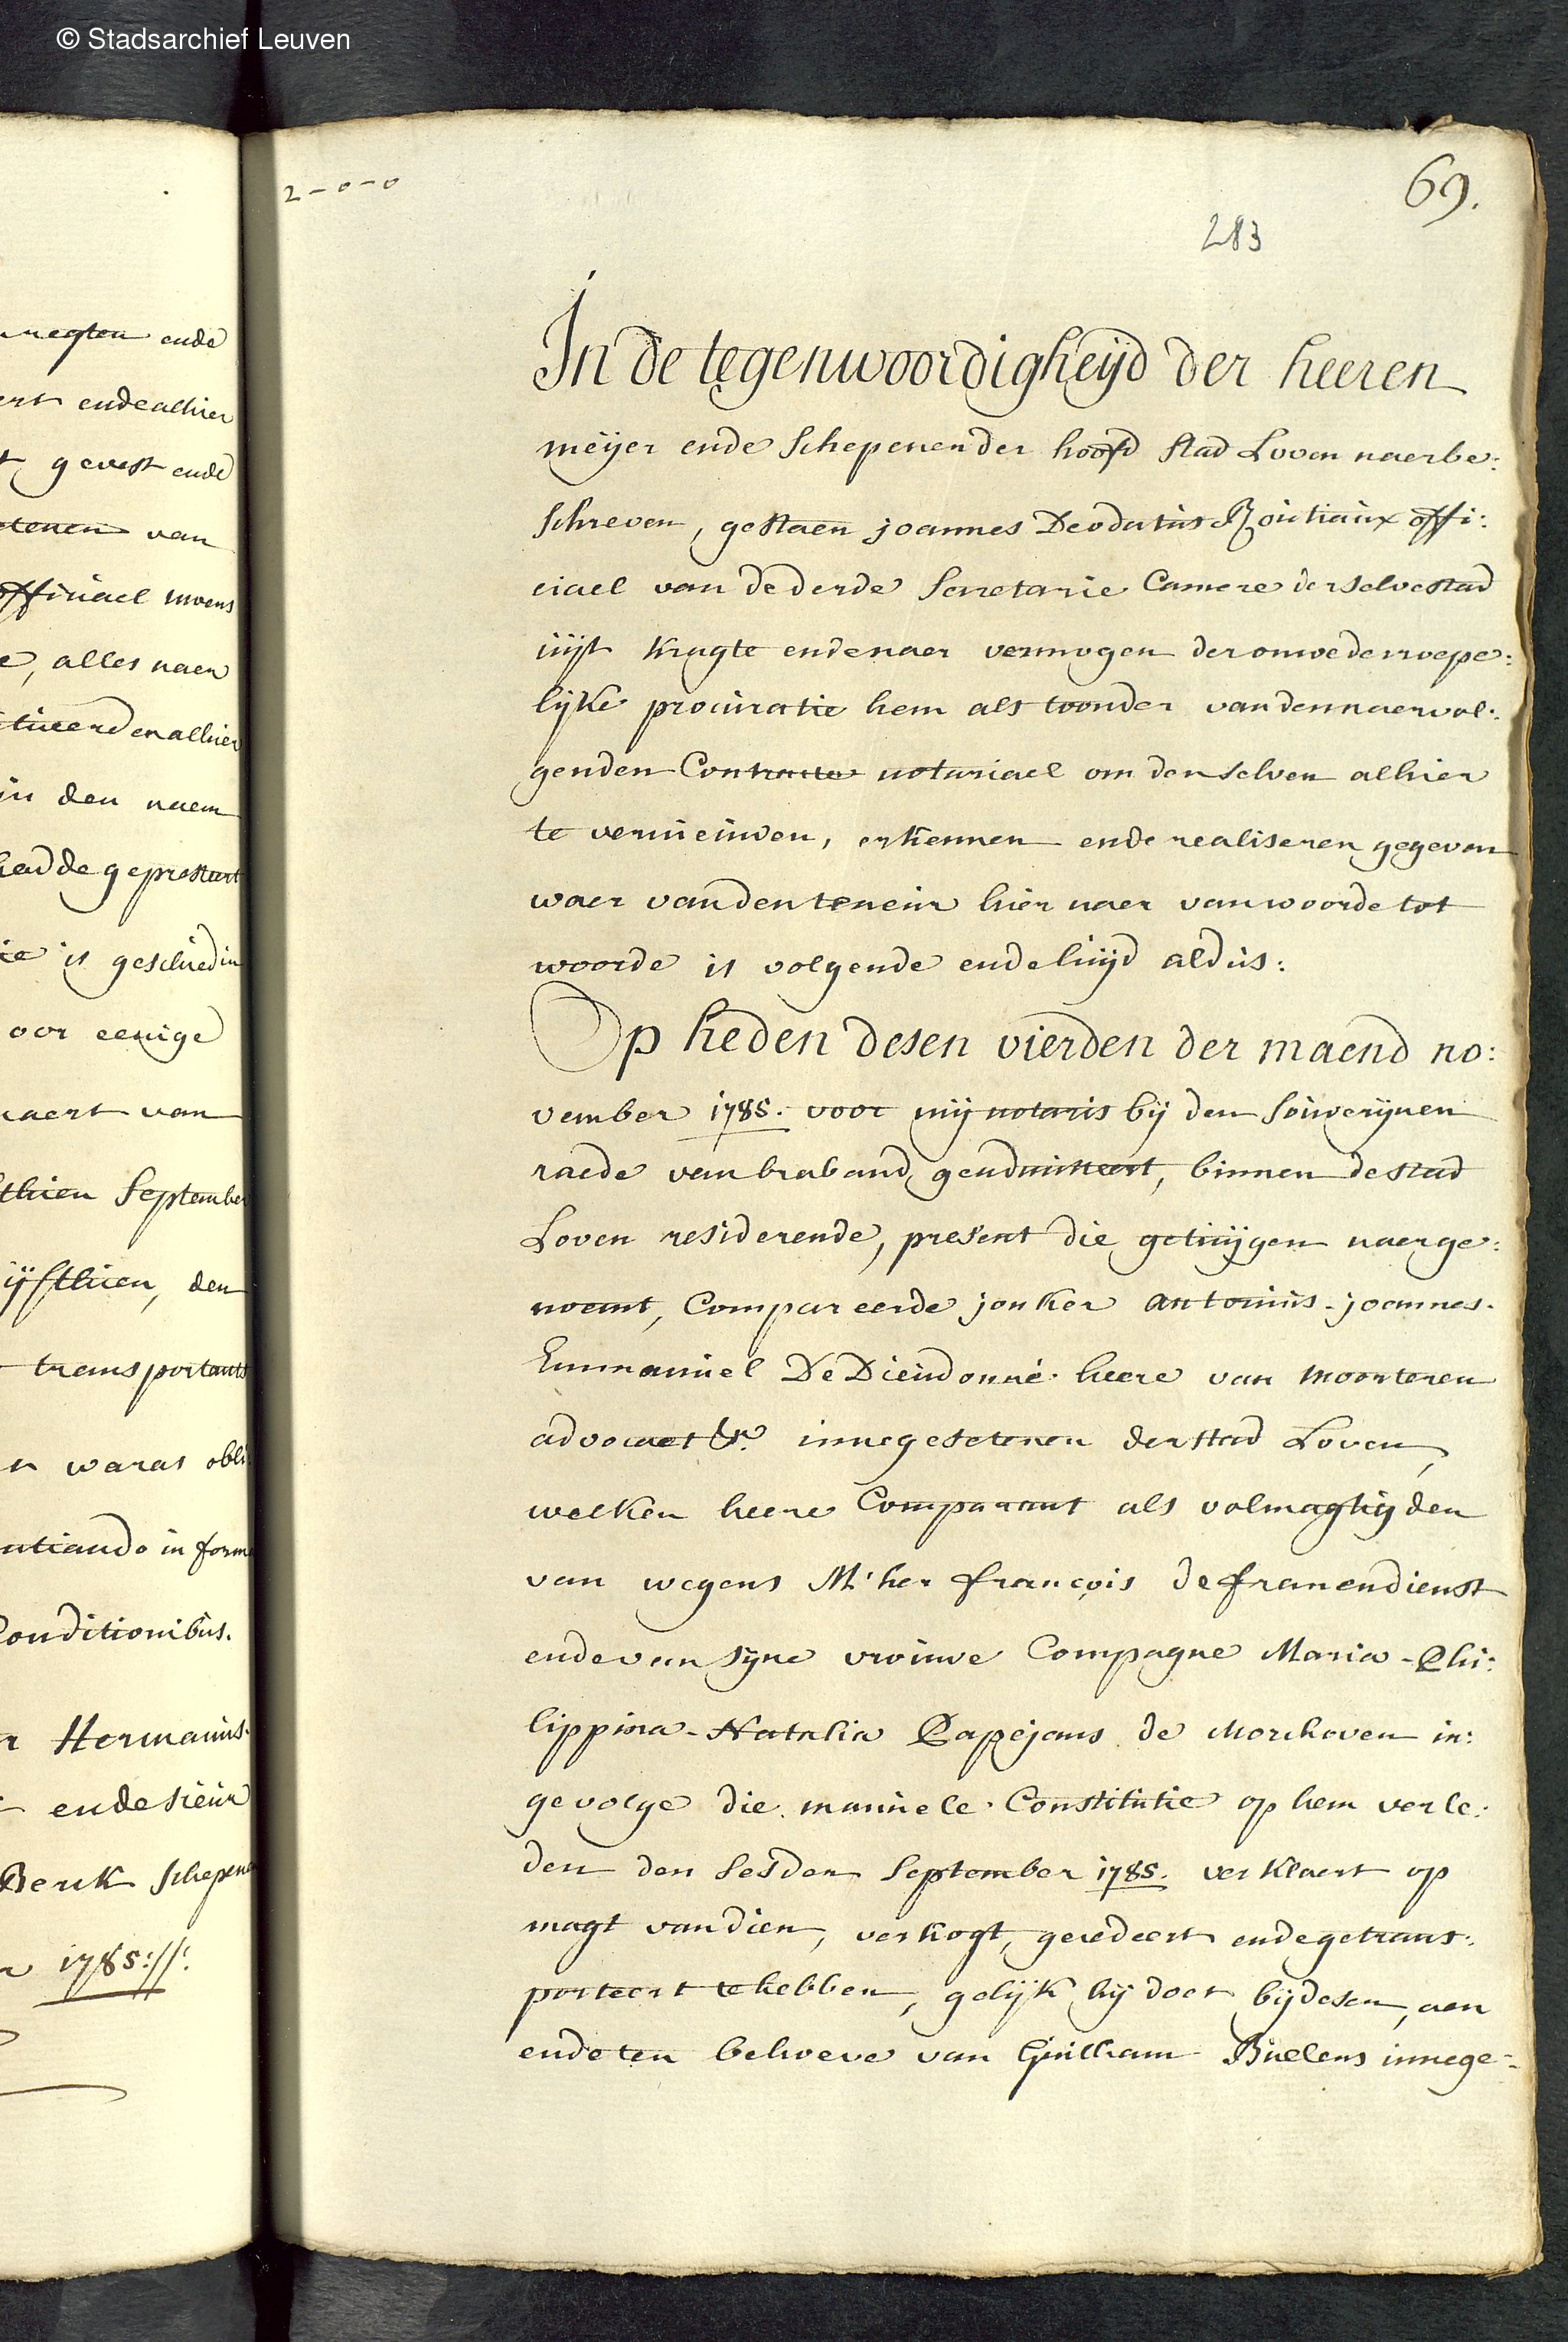 © Stadsarchief Leuven
negten ende
ert ende alhier
t gevest ende
etenen van
officiael moens
e, alles naer
itueerd en alhier
in den naem
hadde gepresteert
ie is geschied in
oor eenige
vaert van
thien September
ijfthien, den
transportants
n waras obli
ntiando in forma
Conditionibus.
r Hermanus.
ende sieur
Berck schepenen
r 1785://:
2-0-0
69.
283
In de tegenwoordigheijd der heeren
meijer ende schepenen der hoofd stad Loven naerbe:
schreven, gestaen joannes Deodatus Routiaux offi:
ciael van de derde secretarie Camere der selve stad
uijt kragte ende naer vermogen der onwederroepe:
lijke procuratie hem als toonder van den naervol:
genden Contracte notariael om den selven alhier
te vernieuwen, erkennen ende realiseren gegeven
waer van den teneur hier naer van woorde tot
woorde is volgende ende luijd aldus:
Op heden desen vierden der maend no:
vember 1785. voor mij notaris bij den souverijnen
raede van braband geadmitteert, binnen de stad
Loven residerende, present die getuijgen naerge:
noemt, Compareerde jonker antonius-joannes-
Emmanuel De Dieudonné heere van moorteren
advocaet &r. innegesetenen der stad Loven,
welken heere Comparant als volmagtigden
van wegens M'her françois de franendienst
ende van sijne vrouwe Compagne Maria-Phi:
lippina-Natalia Papejans de Morchoven in:
gevolge die manuele Constitutie op hem verle:
den den sesden September 1785. verklaert op
magt van dien, verkogt, gecedeert ende getrans:
porteert te hebben, gelijk hij doet bij desen, aen
ende ten behoeve van Guilliam Buelens innege: